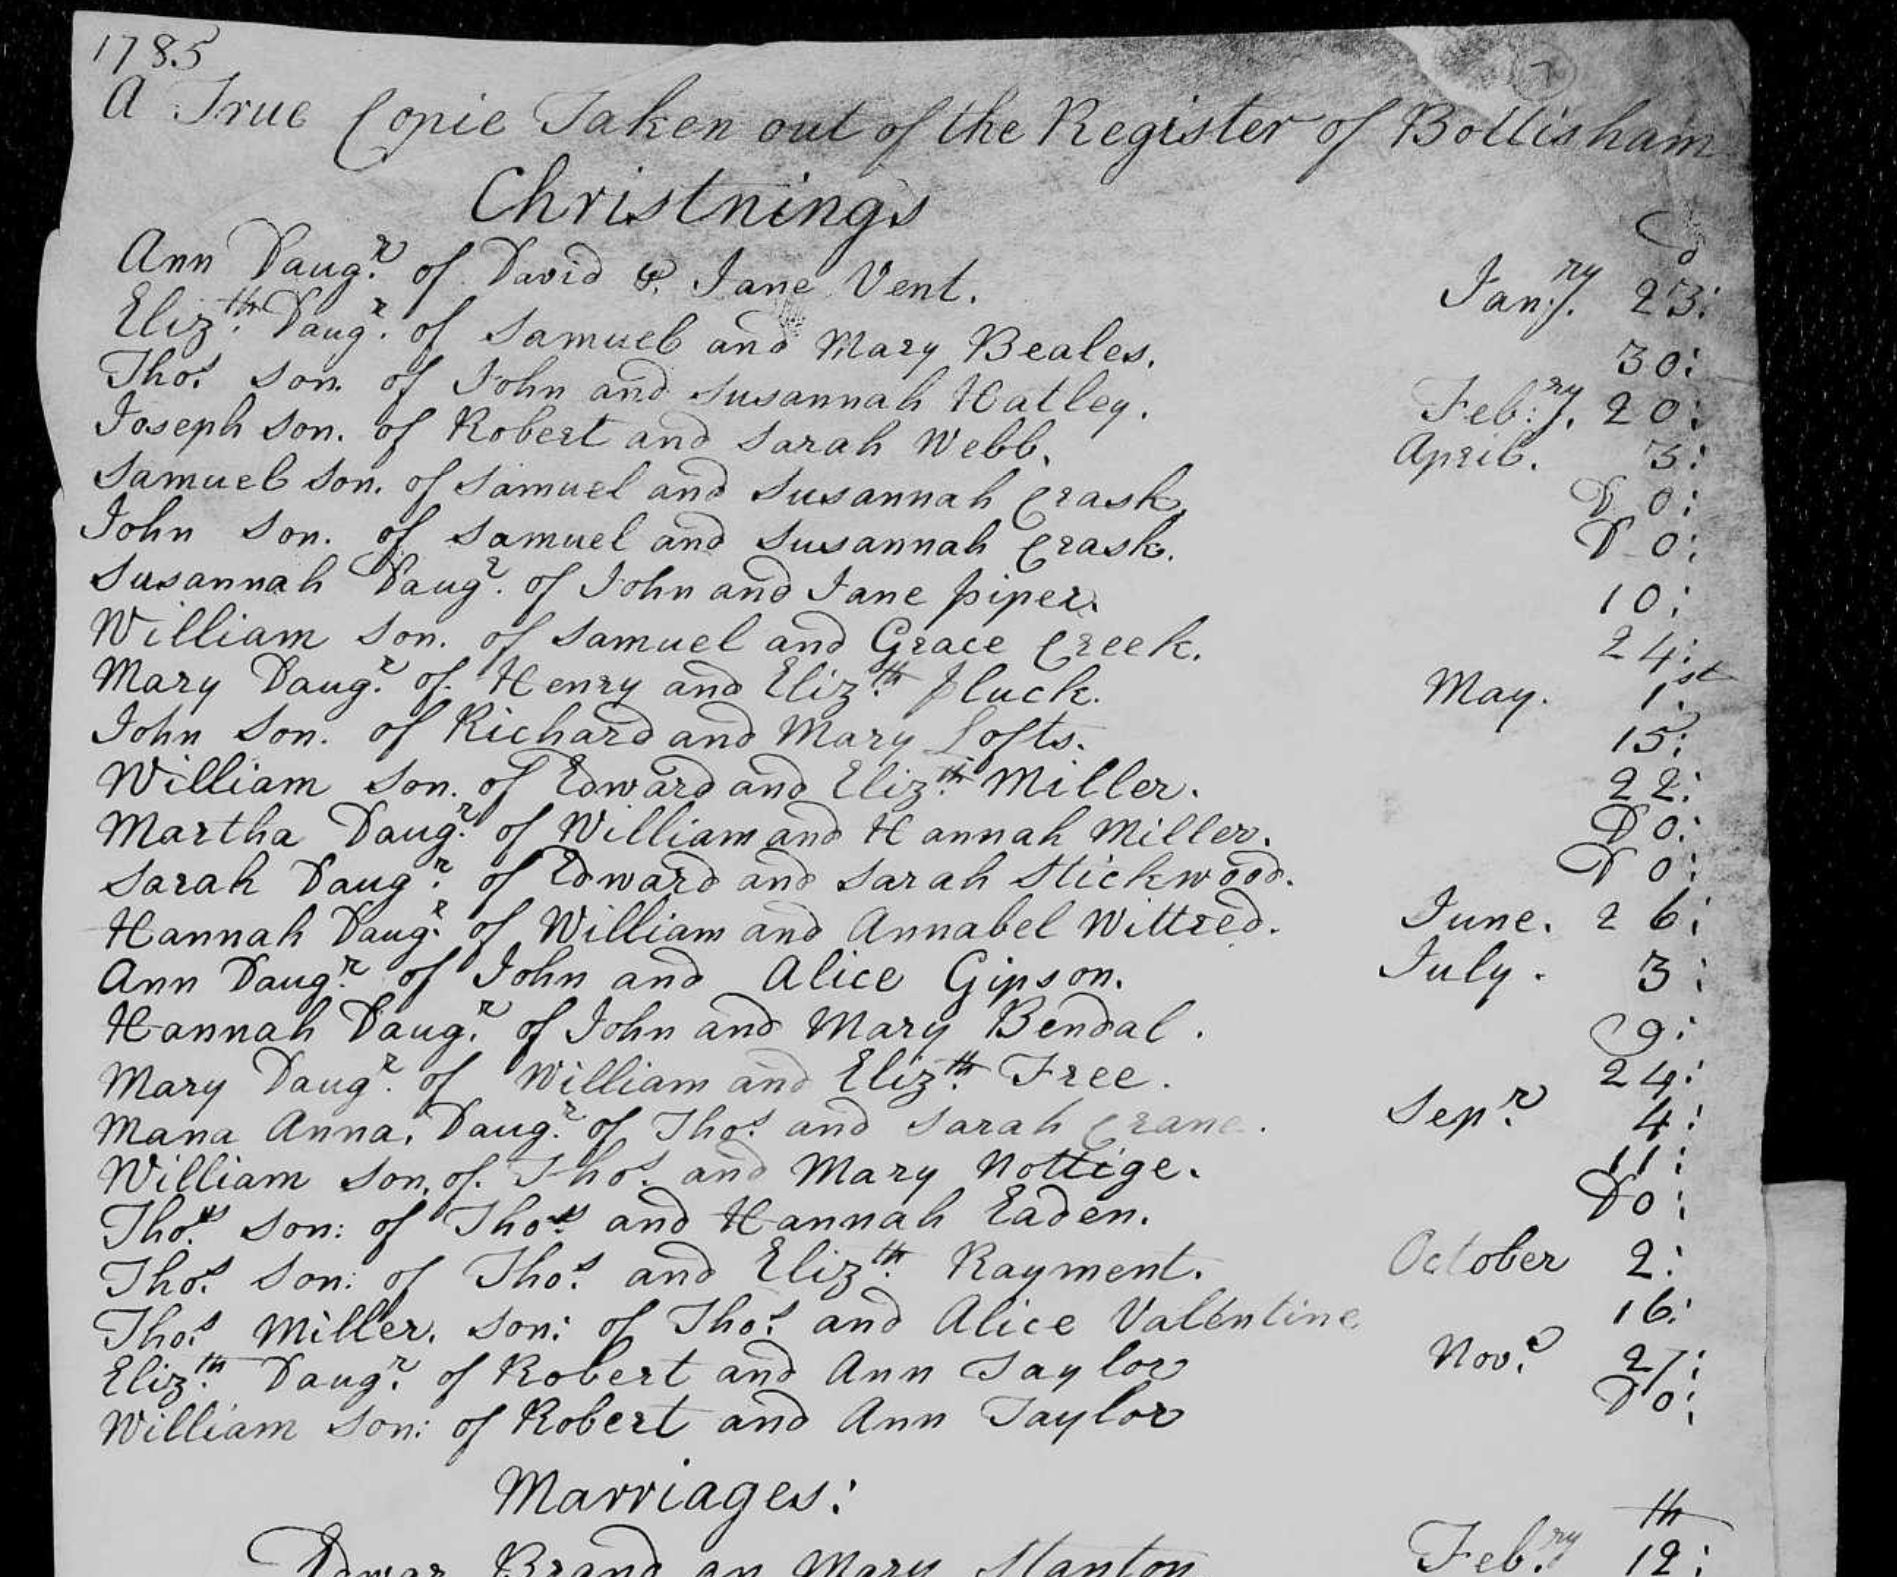 1785
A True Copie Taken out of the Register of Bottisham
Christnings
d
Ann Daugr. of David & Jane Vent. Janry. 23:
Elizth. Daugr. of Samuel and Mary Beales. 30:
Thos. Son. of John and Susannah Hatley. Feb:ry. 20:
Joseph Son. of Robert and Sarah Webb. April. 3:
Samuel Son. of Samuel and Susannah Crask. Do:
John Son. of Samuel and Susannah Crask. Do:
Susannah Daugr. of John and Jane Piper. 10:
William Son. of Samuel and Grace Creek. 24:
Mary Daugr. of Henry and Elizth. Pluck. May. 1st
John Son. of Richard and Mary Lofts. 15:
William Son. of Edward and Elizth. Miller. 22:
Martha Daugr. of William and Hannah Miller. Do:
Sarah Daugr. of Edward and Sarah Stickwood. Do:
Hannah Daugr. of William and Annabel Wittred. June. 26:
Ann Daugr. of John and Alice Gipson. July. 3:
Hannah Daugr. of John and Mary Bendal. 9:
Mary Daugr. of William and Elizth. Free. 24:
Mana Anna. Daugr. of Thos. and Sarah Crane. Sepr. 4:
William Son. of. Thos. and Mary Nottige. 11:
Thos. Son: of Thos. and Hannah Eaden. Do:
Thos. Son: of Thos. and Elizth. Rayment. October 2:
Thos. Miller. Son: of Thos. and Alice Valentine. 16:
Elizth. Daugr. of Robert and Ann Taylor Novr. 27:
William Son: of Robert and Ann Taylor Do:
Marriages:
th
Edwar Brand an Mary Stanton Feb.ry 12: